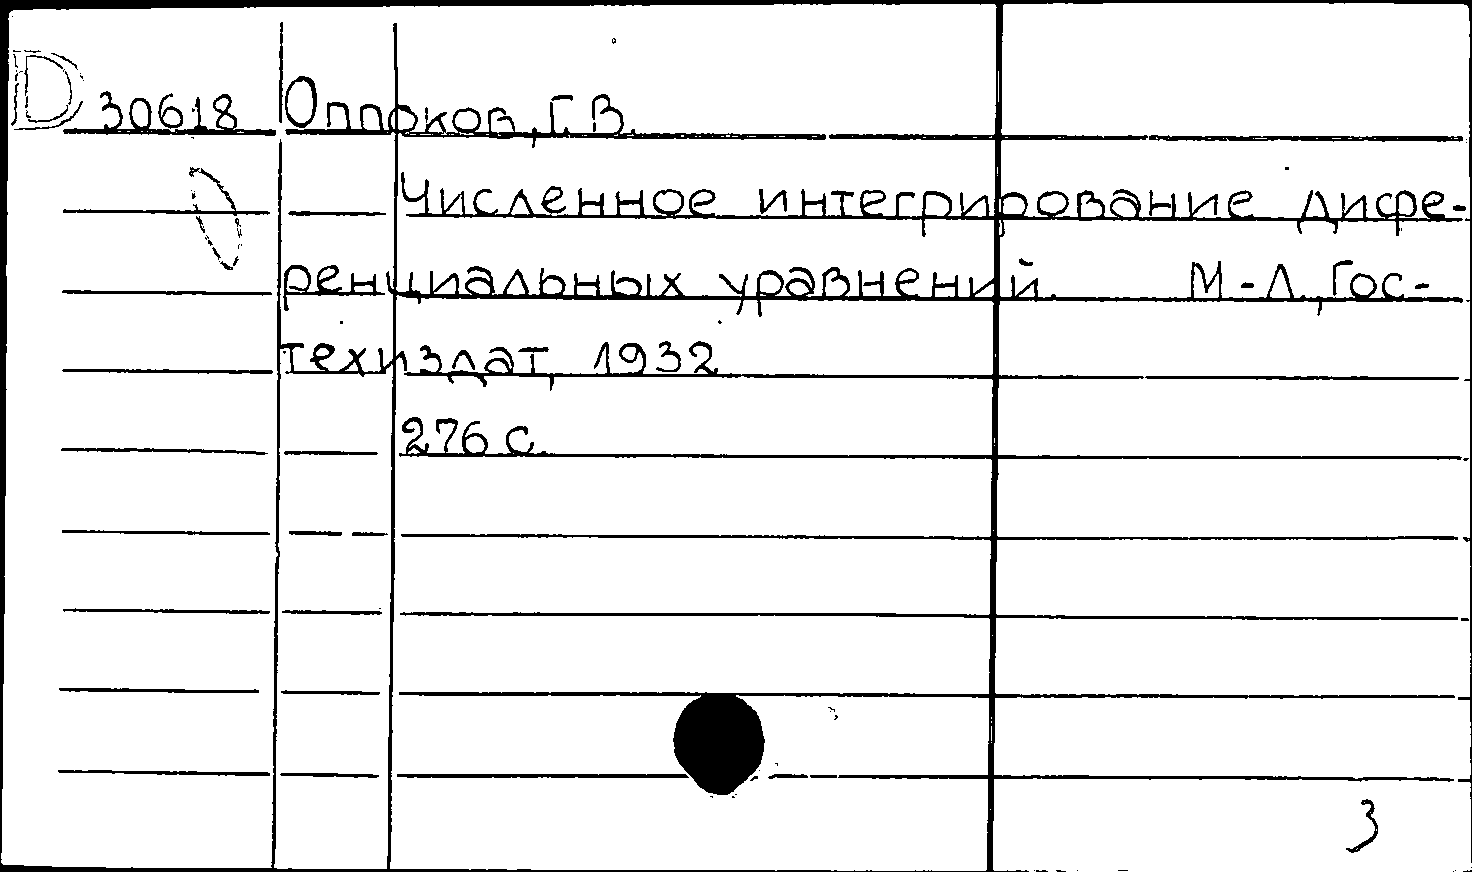 D 30618 Оппоков, Г. В.
Численное интегрирование дифе-
ренциальных уравнений. М.-Л., Гос-
техиздат, 1932
276 с.
3